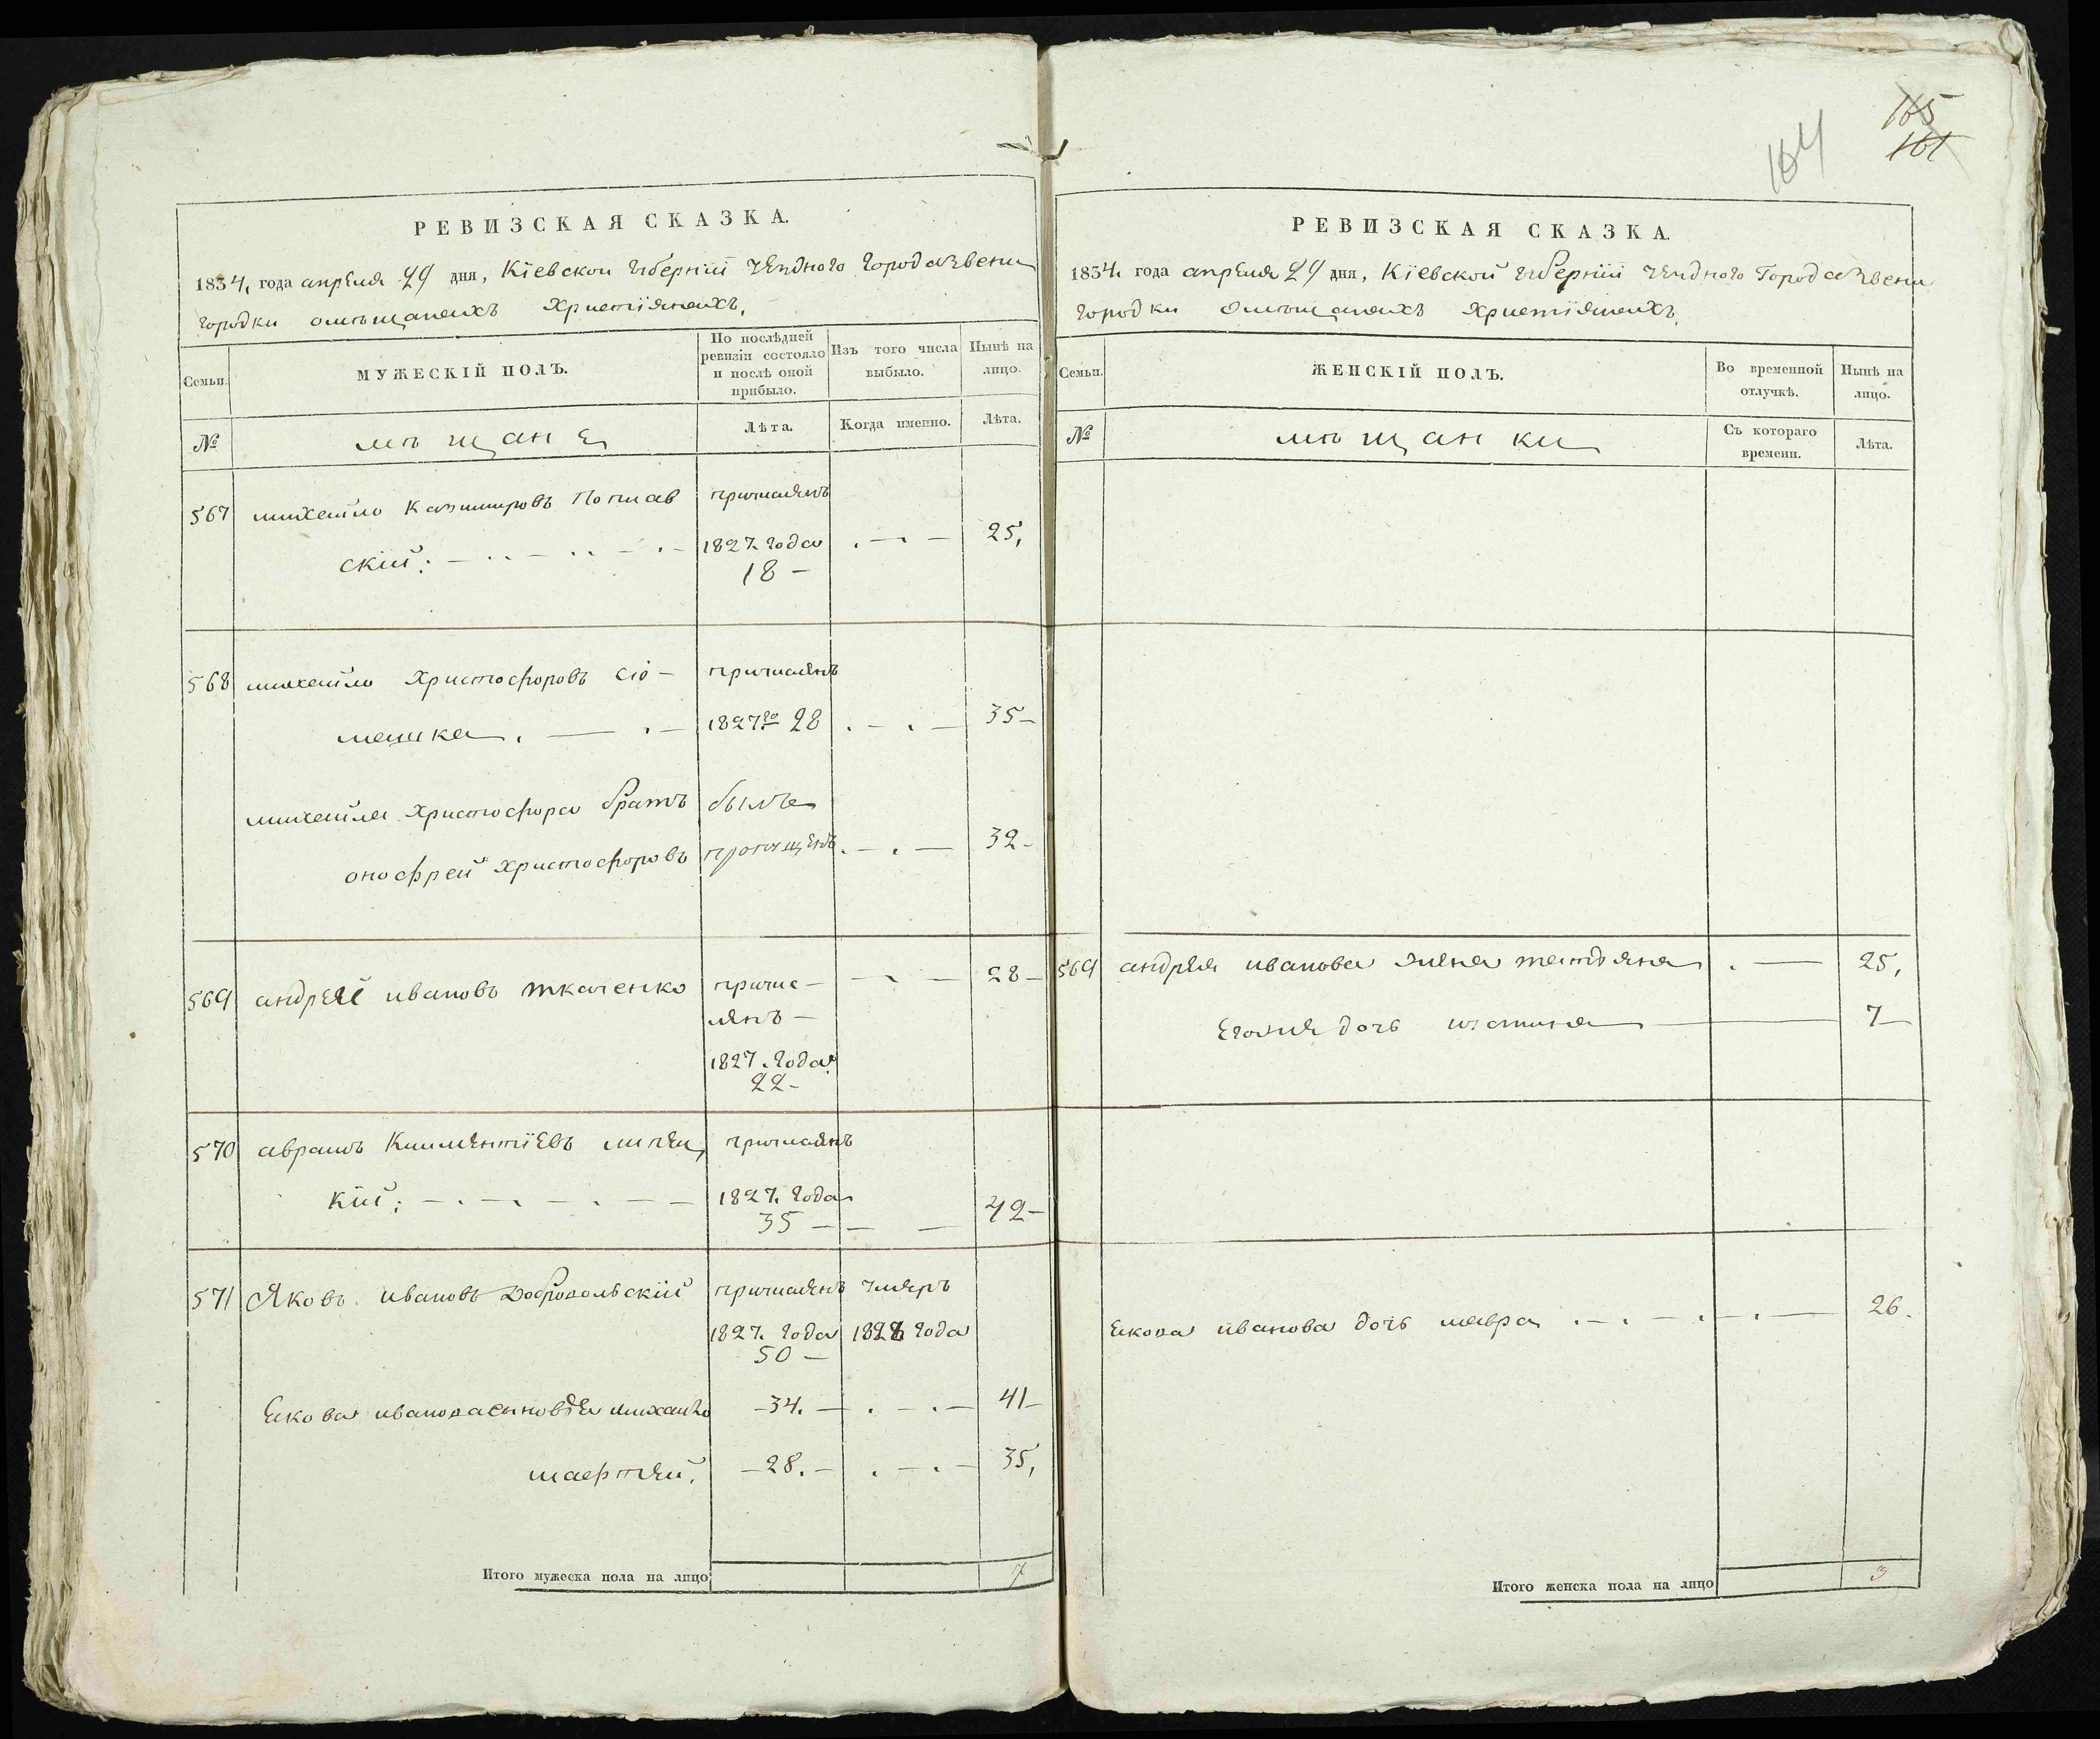 РЕВИЗСКАЯ СКАЗКА.
1834, года апреля 29 дня, Кіевской губерніи уездного города Звени
городки омѣщанахъ христіянахъ,
Семьи.
МУЖЕСКІЙ ПОЛЪ.
По послѣдней ревизіи состояло и послѣ оной прибыло.
Изъ того числа выбыло.
Нынѣ на лицо.
№
мѣщане
Лѣта.
Когда именно.
Лѣта.
567 михайло Казимировъ причисленъ
скій: 1827. года 25,
18 –
568 михайло Христофоровъ сло – причисленъ
1827го 28 35 –
михайла Христофора братъ былъ
онофрей Христофоровъ пропущенъ 32 –
569 андрей ивановъ ткаченко причис – 28 –
ленъ –
1827. года
22 –
570 аврамъ Климентіевъ липец причисленъ
кій: 1827. года
35 – 42 –
571 Яковъ ивановъ Добровольскій причисленъ умеръ
1827. года 1828 года
50 –
Якова иванова сыновья михайло – 34. – 41 –
матфей. – 28. – 35,
Итого мужеска пола на лицо 7
165
161
164
РЕВИЗСКАЯ СКАЗКА.
1834. года апреля 29 дня, Кіевской губерніи уездного Города Звени
городки омѣщанахъ христіянахъ,
Семьи.
ЖЕНСКІЙ ПОЛЪ.
Во временной отлучкѣ.
Нынѣ на лицо.
№
мѣщанки
Съ котораго времени.
Лѣта.
569 андрея иванова жена татяна 25,
его дочь устина 7
якова иванова дочь мавра 26.
Итого женска пола на лицо 3